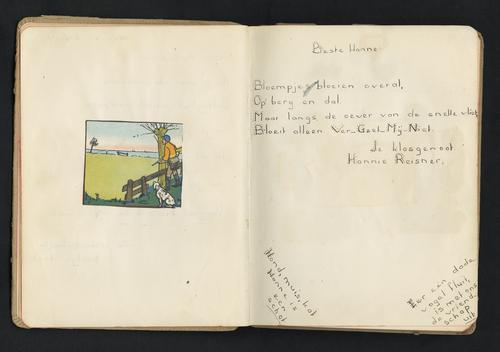 Beste Hanne
Bloempjes bloeien overal,
Op berg en dal.
Maar langs de oever van de snelle vliet,
Bloeit alleen Ver-Geet-Mij-Niet.
Je klasgenoot
Hannie Reisner.
Hond, muis, kat
Hanne is
een
schat
Eer een dode
vogel fluit,
is met ons
de vriend-
schap
uit